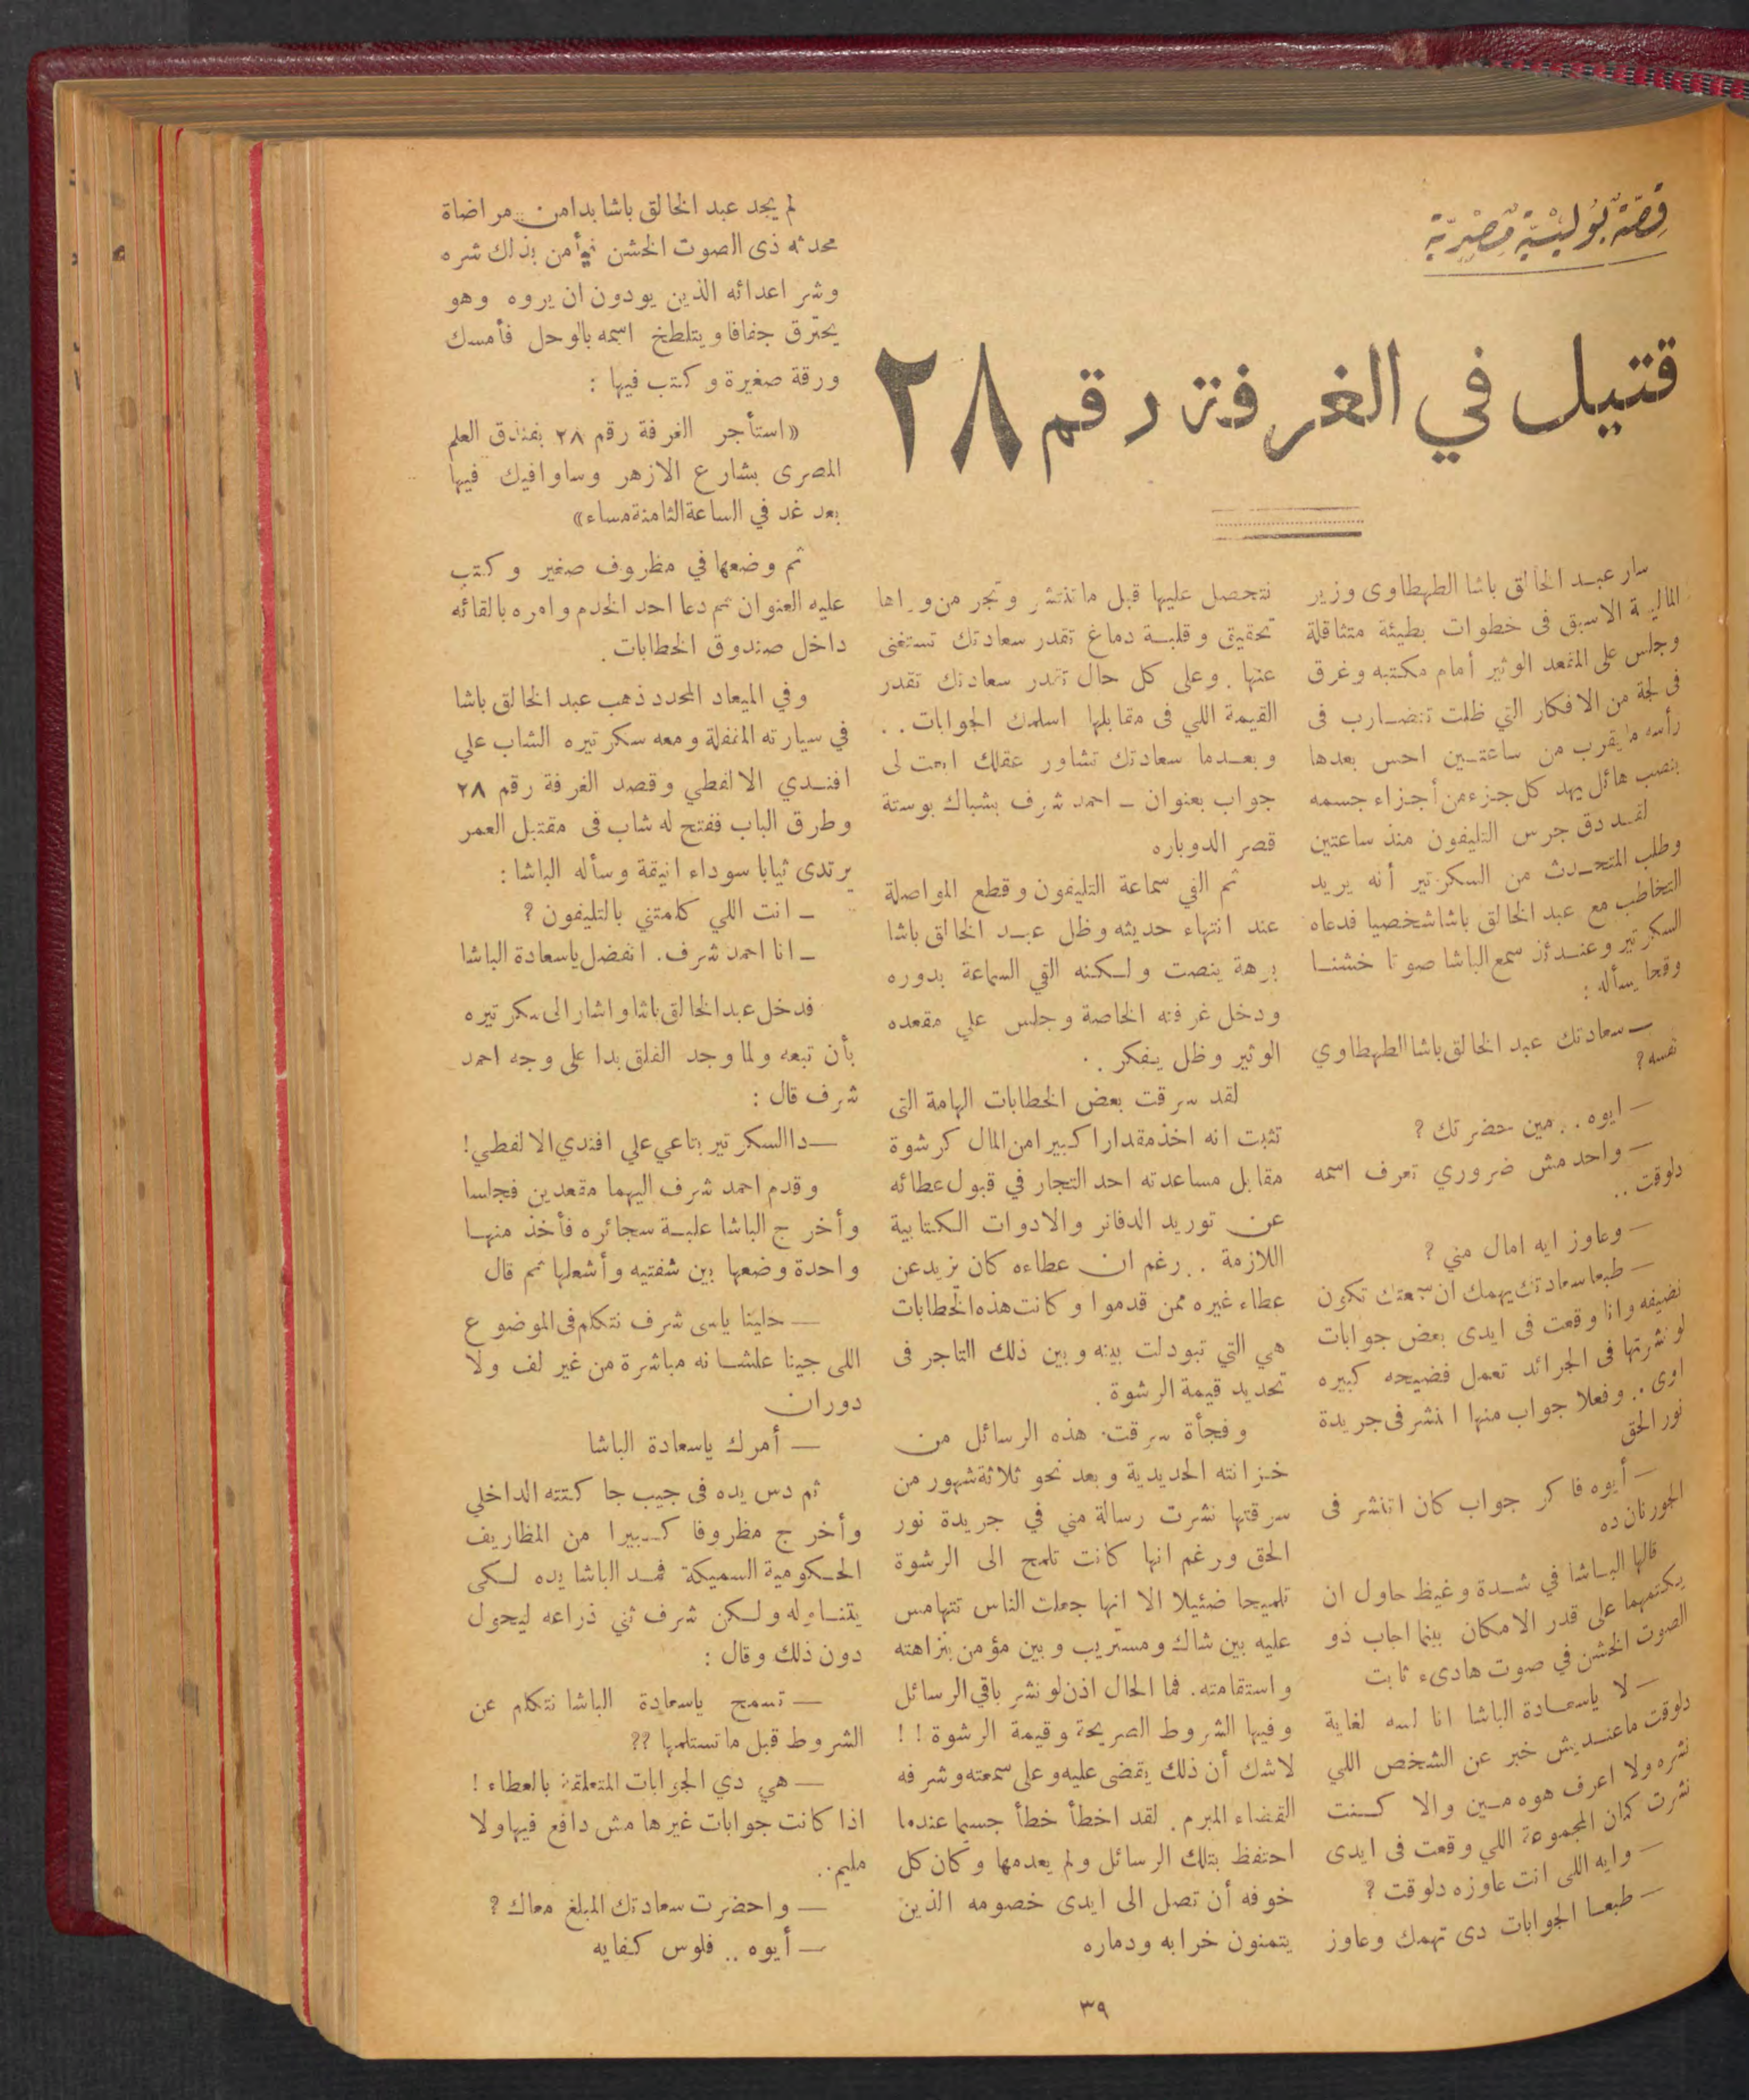 قصة بوليسية مصرية
قتيل في الغرفة رقم ٢٨
سار عبد الخالق باشا الطهطاوى وزير
المالية الاسبق فى خطوات بطيئة متثاقلة
وجلس على المقعد الوثير أمام مكتبه وغرق
فى لجة من الافكار التي ظلت تتضارب فى
رأسه ما يقرب من ساعتين احس بعدها
بنصب هائل يهد كل جزء من أجزاء جسمه
لقد دق جرس التليفون منذ ساعتين
وطلب المتحدث من السكرتير أنه يريد
التخاطب مع عبد الخالق باشا شخصيا فدعاه
السكرتير وعندئذ سمع الباشا صوتا خشنا
وقحا يسأله :
— سعادتك عبد الخالق باشا الطهطاوي
نفسه ?
— ايوه . . مين حضرتك ?
— واحد مش ضروري تعرف اسمه
دلوقت ..
— وعاوز ايه امال مني ?
— طبعا سعادتك يهمك ان سمعتك تكون
نضيفه وانا وقعت فى ايدى بعض جوابات
لو نشرتها فى الجرائد تعمل فضيحه كبيره
اوى .. وفعلا جواب منها انتشر فى جريدة
نور الحق
— أيوه فاكر جواب كان اتنشر فى
الجورنان ده
قالها الباشا في شدة وغيظ حاول ان
يكتمهما على قدر الامكان بينما اجاب ذو
الصوت الخشن في صوت هادىء ثابت
— لا ياسعادة الباشا انا لسه لغاية
دلوقت ماعنديش خبر عن الشخص اللي
نشره ولا اعرف هوه مين والا كنت
نشرت كمان المجموعة اللي وقعت فى ايدى
— وايه اللى انت عاوزه دلوقت ?
— طبعا الجوابات دى تهمك وعاوز
تتحصل عليها قبل ماتنتشر وتجر من وراها
تحقيق وقلبة دماغ تقدر سعادتك تستغنى
عنها . وعلى كل حال تقدر سعادتك تقدر
القيمة اللي فى مقابلها اسلمك الجوابات . .
وبعدما سعادتك تشاور عقلك ابعت لى
جواب بعنوان – احمد شرف بشباك بوستة
قصر الدوباره
ثم القي سماعة التليفون وقطع المواصلة
عند انتهاء حديثه وظل عبد الخالق باشا
برهة ينصت ولكنه القي السماعة بدوره
ودخل غرفته الخاصة وجلس علي مقعده
الوثير وظل يفكر .
لقد سرقت بعض الخطابات الهامة التى
تثبت انه اخذ مقدارا كبيرا من المال كرشوة
مقابل مساعدته احد التجار في قبول عطائه
عن توريد الدفاتر والادوات الكتابية
اللازمة . . رغم ان عطاءه كان يزيد عن
عطاء غيره ممن قدموا وكانت هذه الخطابات
هي التي تبودلت بينه وبين ذلك التاجر فى
تحديد قيمة الرشوة .
وفجأة سرقت هذه الرسائل من
خزانته الحديدية وبعد نحو ثلاثة شهور من
سرقتها نشرت رسالة مني في جريدة نور
الحق ورغم انها كانت تلمح الى الرشوة
تلميحا ضئيلا الا انها جعلت الناس تتهامس
عليه بين شاك ومستريب وبين مؤمن بنزاهته
واستقامته . فما الحال اذن لو نشر باقي الرسائل
وفيها الشروط الصريحة وقيمة الرشوة ! !
لاشك أن ذلك يقضى عليه وعلى سمعته وشرفه
القضاء المبرم . لقد اخطأ خطأ جسيما عندما
احتفظ بتلك الرسائل ولم يعدمها وكان كل
خوفه أن تصل الى ايدى خصومه الذين
يتمنون خرابه ودماره
لم يجد عبد الخالق باشا بدا من مراضاة
محدثه ذى الصوت الخشن فيأمن بذلك شره
وشر اعدائه الذين يودون ان يروه وهو
يحترق جفافا ويتلطخ اسمه بالوحل فأمسك
ورقة صغيرة وكتب فيها :
«استأجر الغرفة رقم ٢٨ بفندق العلم
المصرى بشارع الازهر وساوافيك فيها
بعد غد في الساعة الثامنة مساء»
ثم وضعها في مظروف صغير وكتب
عليه العنوان ثم دعا احد الخدم وامره بالقائه
داخل صندوق الخطابات .
وفي الميعاد المحدد ذهب عبد الخالق باشا
في سيارته المقفلة ومعه سكرتيره الشاب علي
افندي الالفطي وقصد الغرفة رقم ٢٨
وطرق الباب ففتح له شاب فى مقتبل العمر
يرتدى ثيابا سوداء انيقة وسأله الباشا :
– انت اللي كلمتني بالتليفون ?
– انا احمد شرف . اتفضل ياسعادة الباشا
فدخل عبد الخالق باشا واشار الى سكرتيره
بأن تبعه ولما وجد القلق بدا على وجه احمد
شرف قال :
— دا السكرتير بتاعي علي افندي الالفطي !
وقدم احمد شرف اليهما مقعدين فجلسا
وأخرج الباشا علبة سجائره فأخذ منها
واحدة وضعها بين شفتيه وأشعلها ثم قال
— خلينا ياسى شرف نتكلم فى الموضوع
اللى جينا علشانه مباشرة من غير لف ولا
دوران
— أمرك ياسعادة الباشا
ثم دس يده فى جيب جاكتته الداخلي
وأخرج مظروفا كبيرا من المظاريف
الحكومية السميكة فمد الباشا يده لكى
يتناوله ولكن شرف ثني ذراعه ليحول
دون ذلك وقال :
— تسمح ياسعادة الباشا نتكلم عن
الشروط قبل ماتستلمها ??
— هي دي الجوابات المتعلقة بالعطاء !
اذا كانت جوابات غيرها مش دافع فيها ولا
مليم ..
— واحضرت سعادتك المبلغ معاك ?
— أيوه .. فلوس كفايه
٣٩